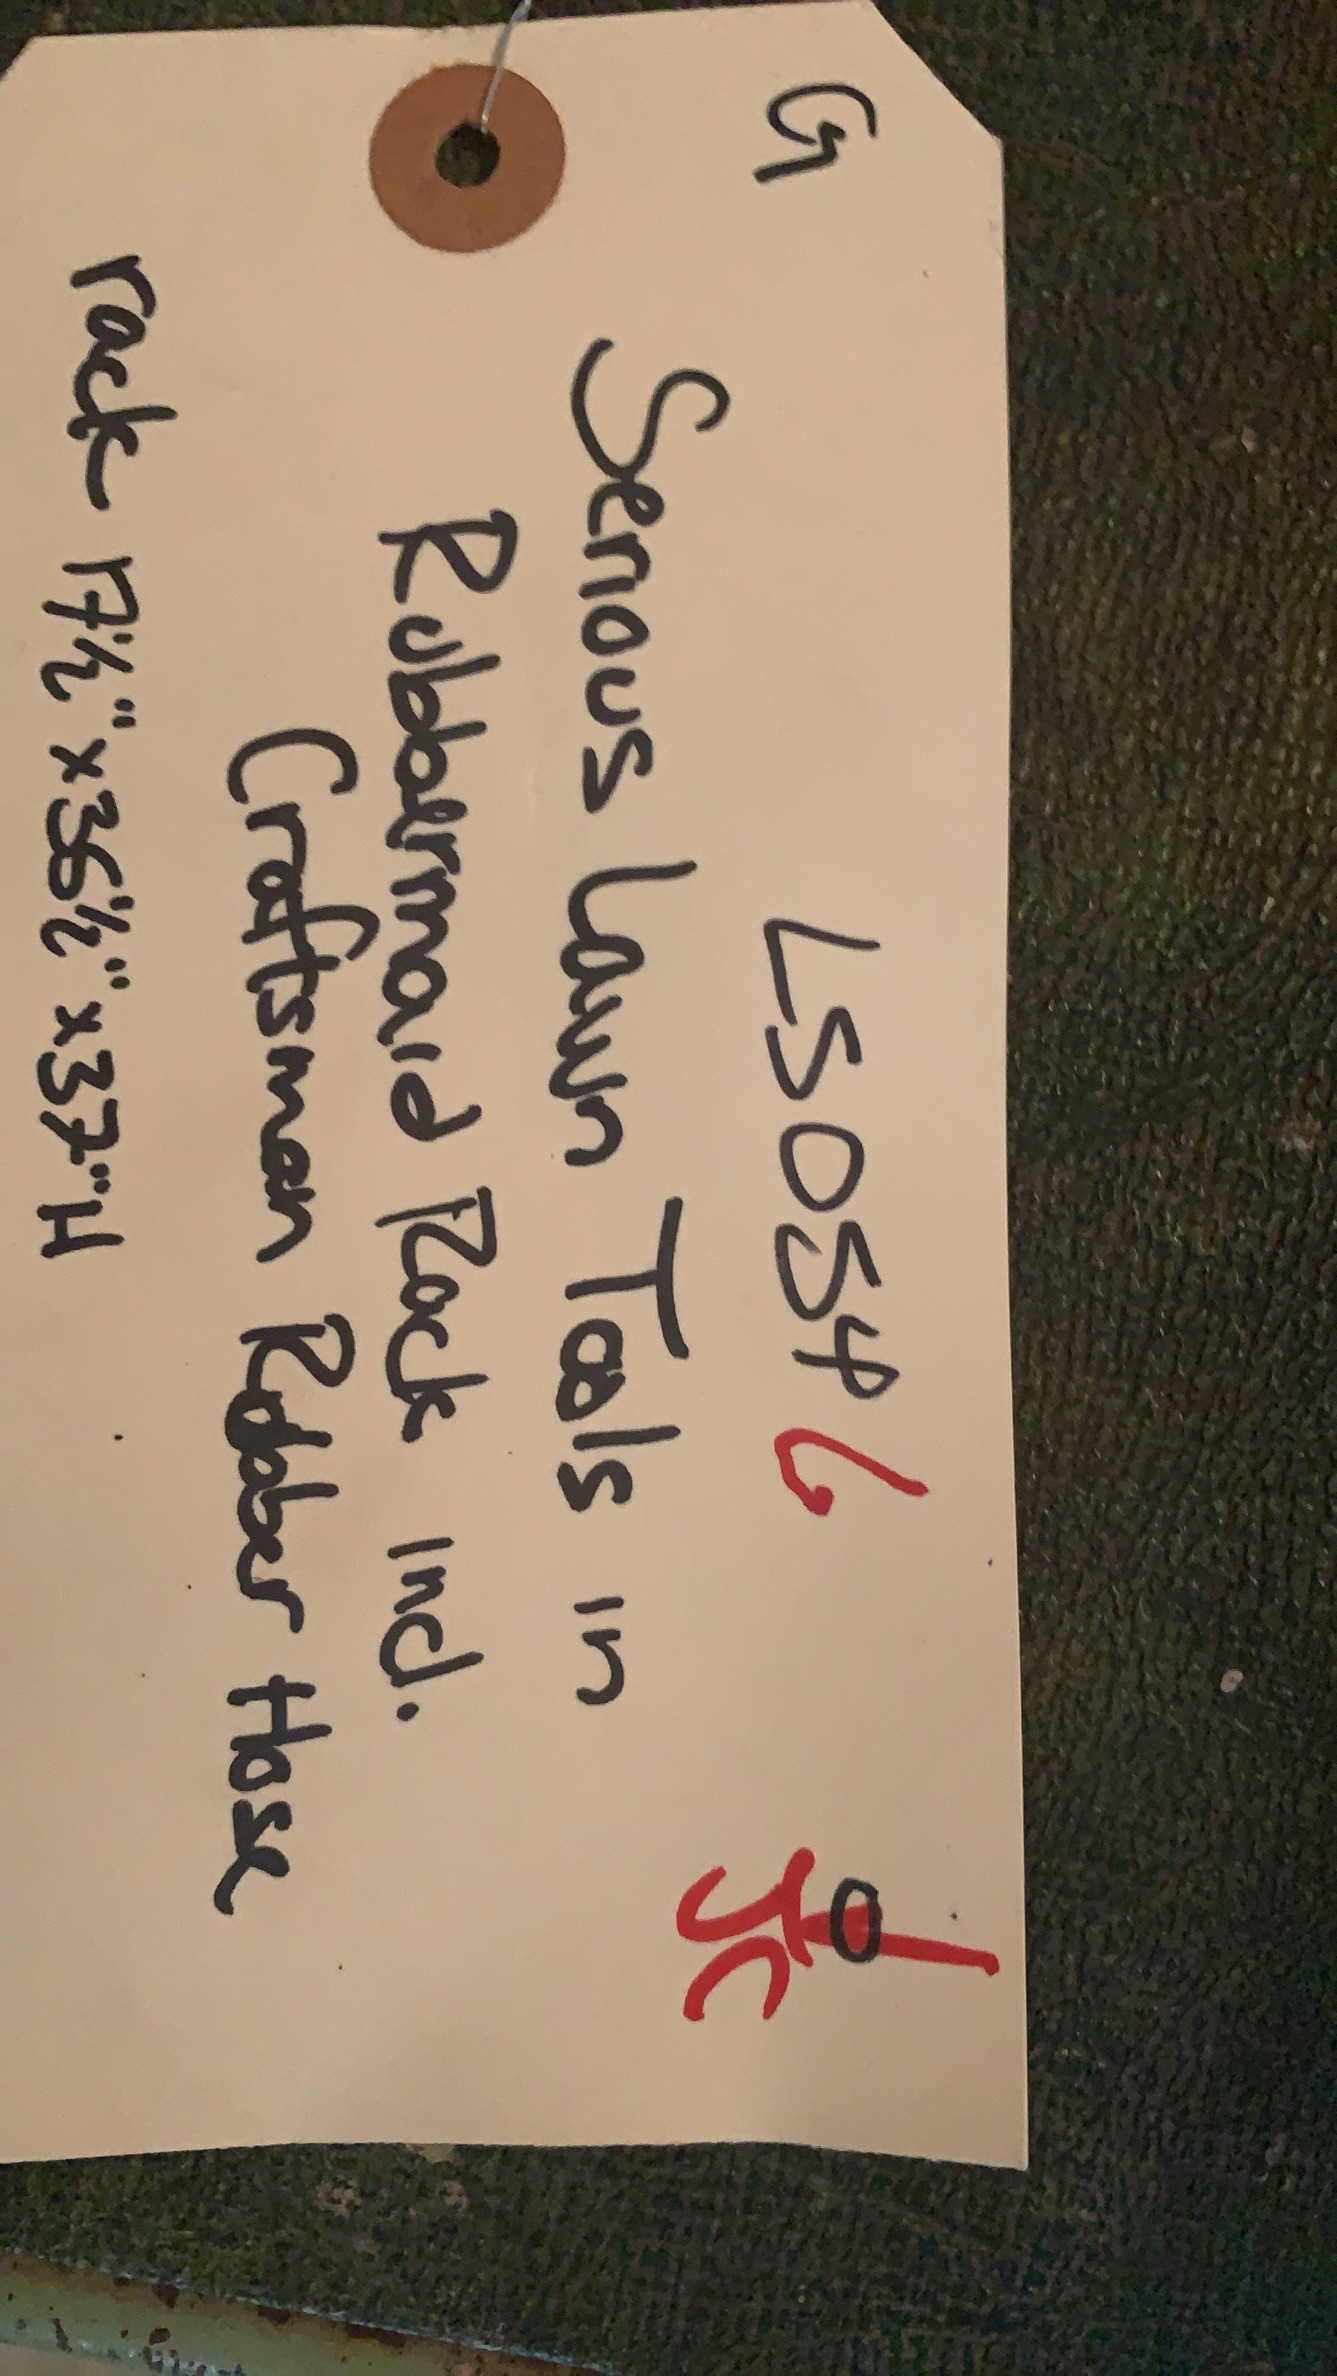 G LS0546
JC
Serious Lawn Tools in
Rubbermaid Rack incl.
Craftsman Rubber Hose
rack 17½" x 36½" x 37"H